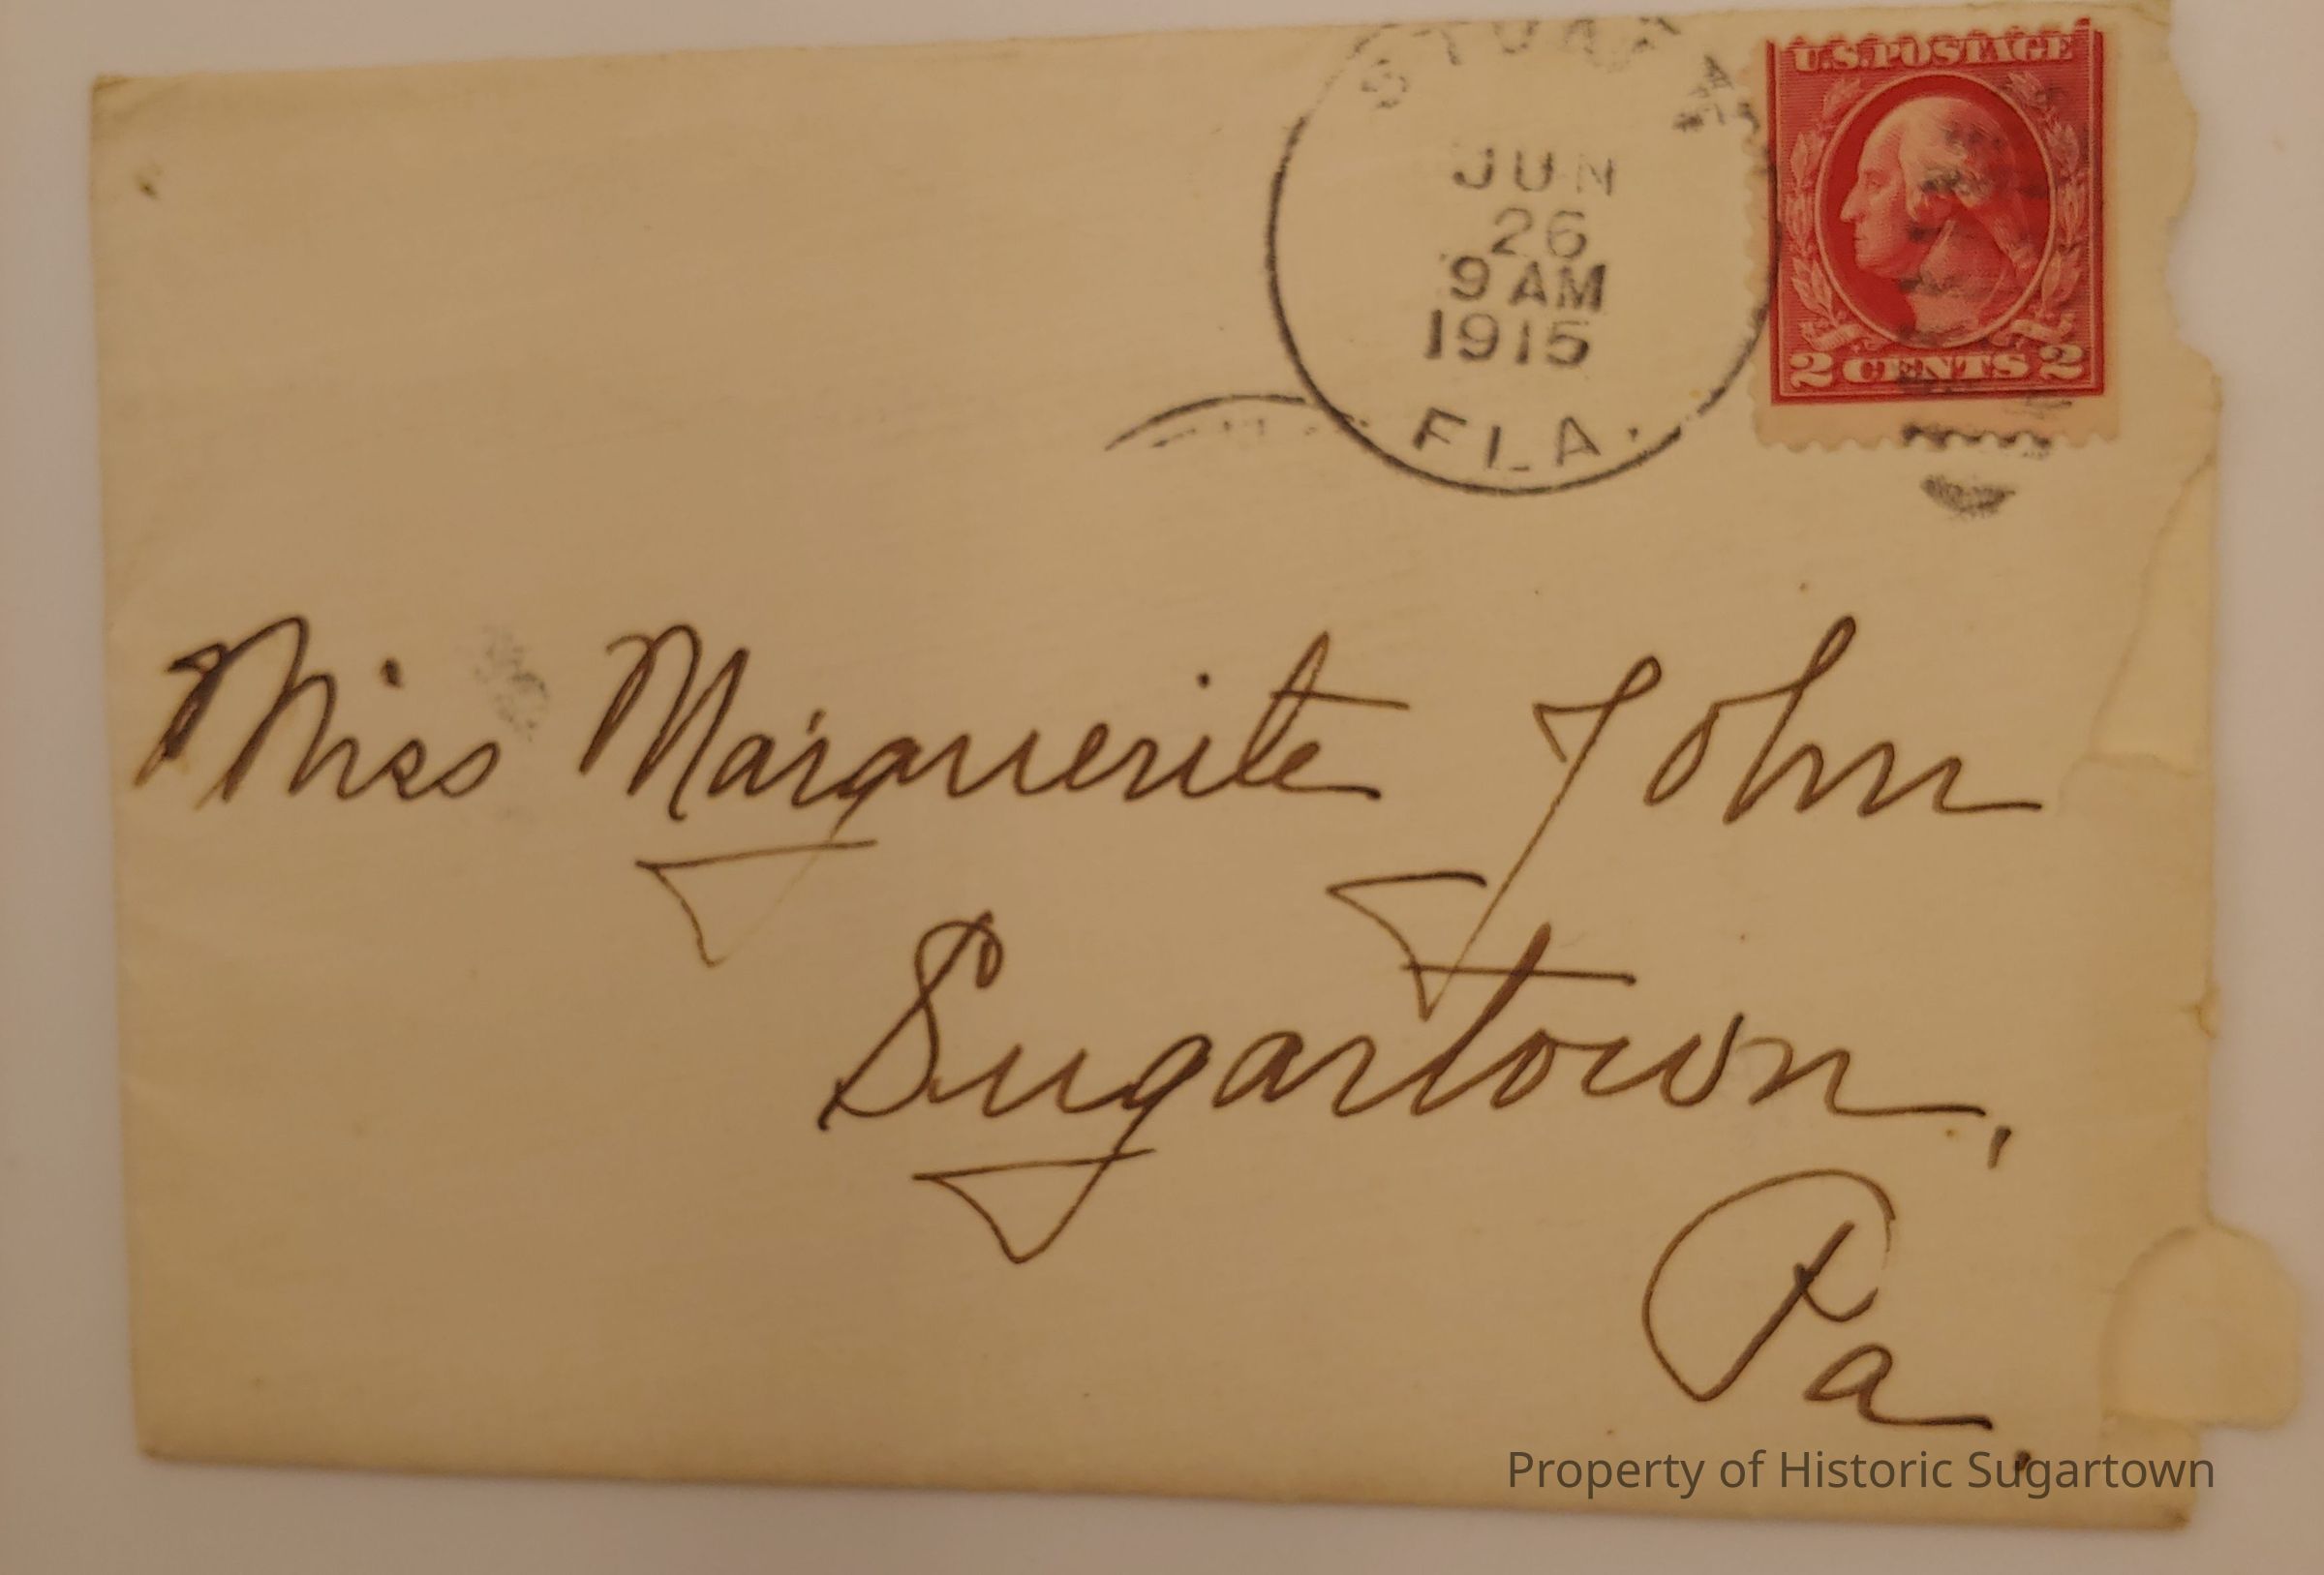 U.S. POSTAGE
JUN
26
9 AM
1915
FLA.
2 CENTS 2
Miss Marguerite John
Sugartown,
Pa.
Property of Historic Sugartown